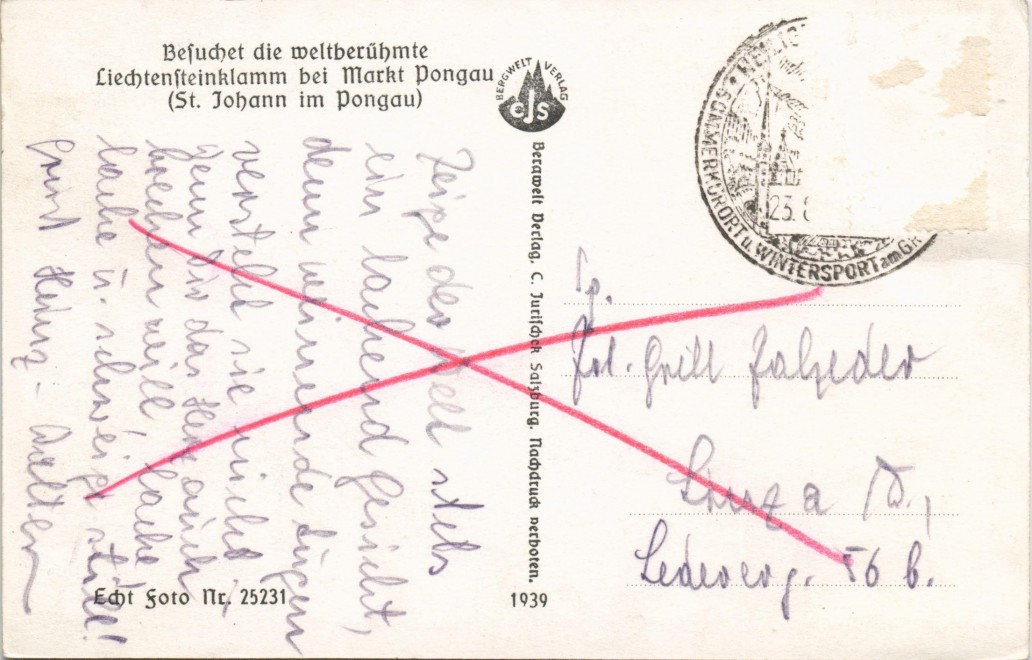 Besuchet die weltberühmte
Liechtensteinklamm bei Markt Pongau
(St. Johann im Pongau)
BERGWELT VERLAG
CJS
Zeige der Welt stets
ein lachend Gesicht,
denn weinende Augen
versteht sie nicht!
Wenn Dir das Herz auch
brechen will, lache
lache u. schweige stille!
Heinz - Walter
Echt Foto Nr. 25231
Bergwelt Verlag, C. Jurischek Salzburg. Nachdruck verboten.
1939
SOMMERKURORT u. WINTERSPORT am GR
23.
Frl. Grill
Linz a D.,
Lederer g. 56 b.